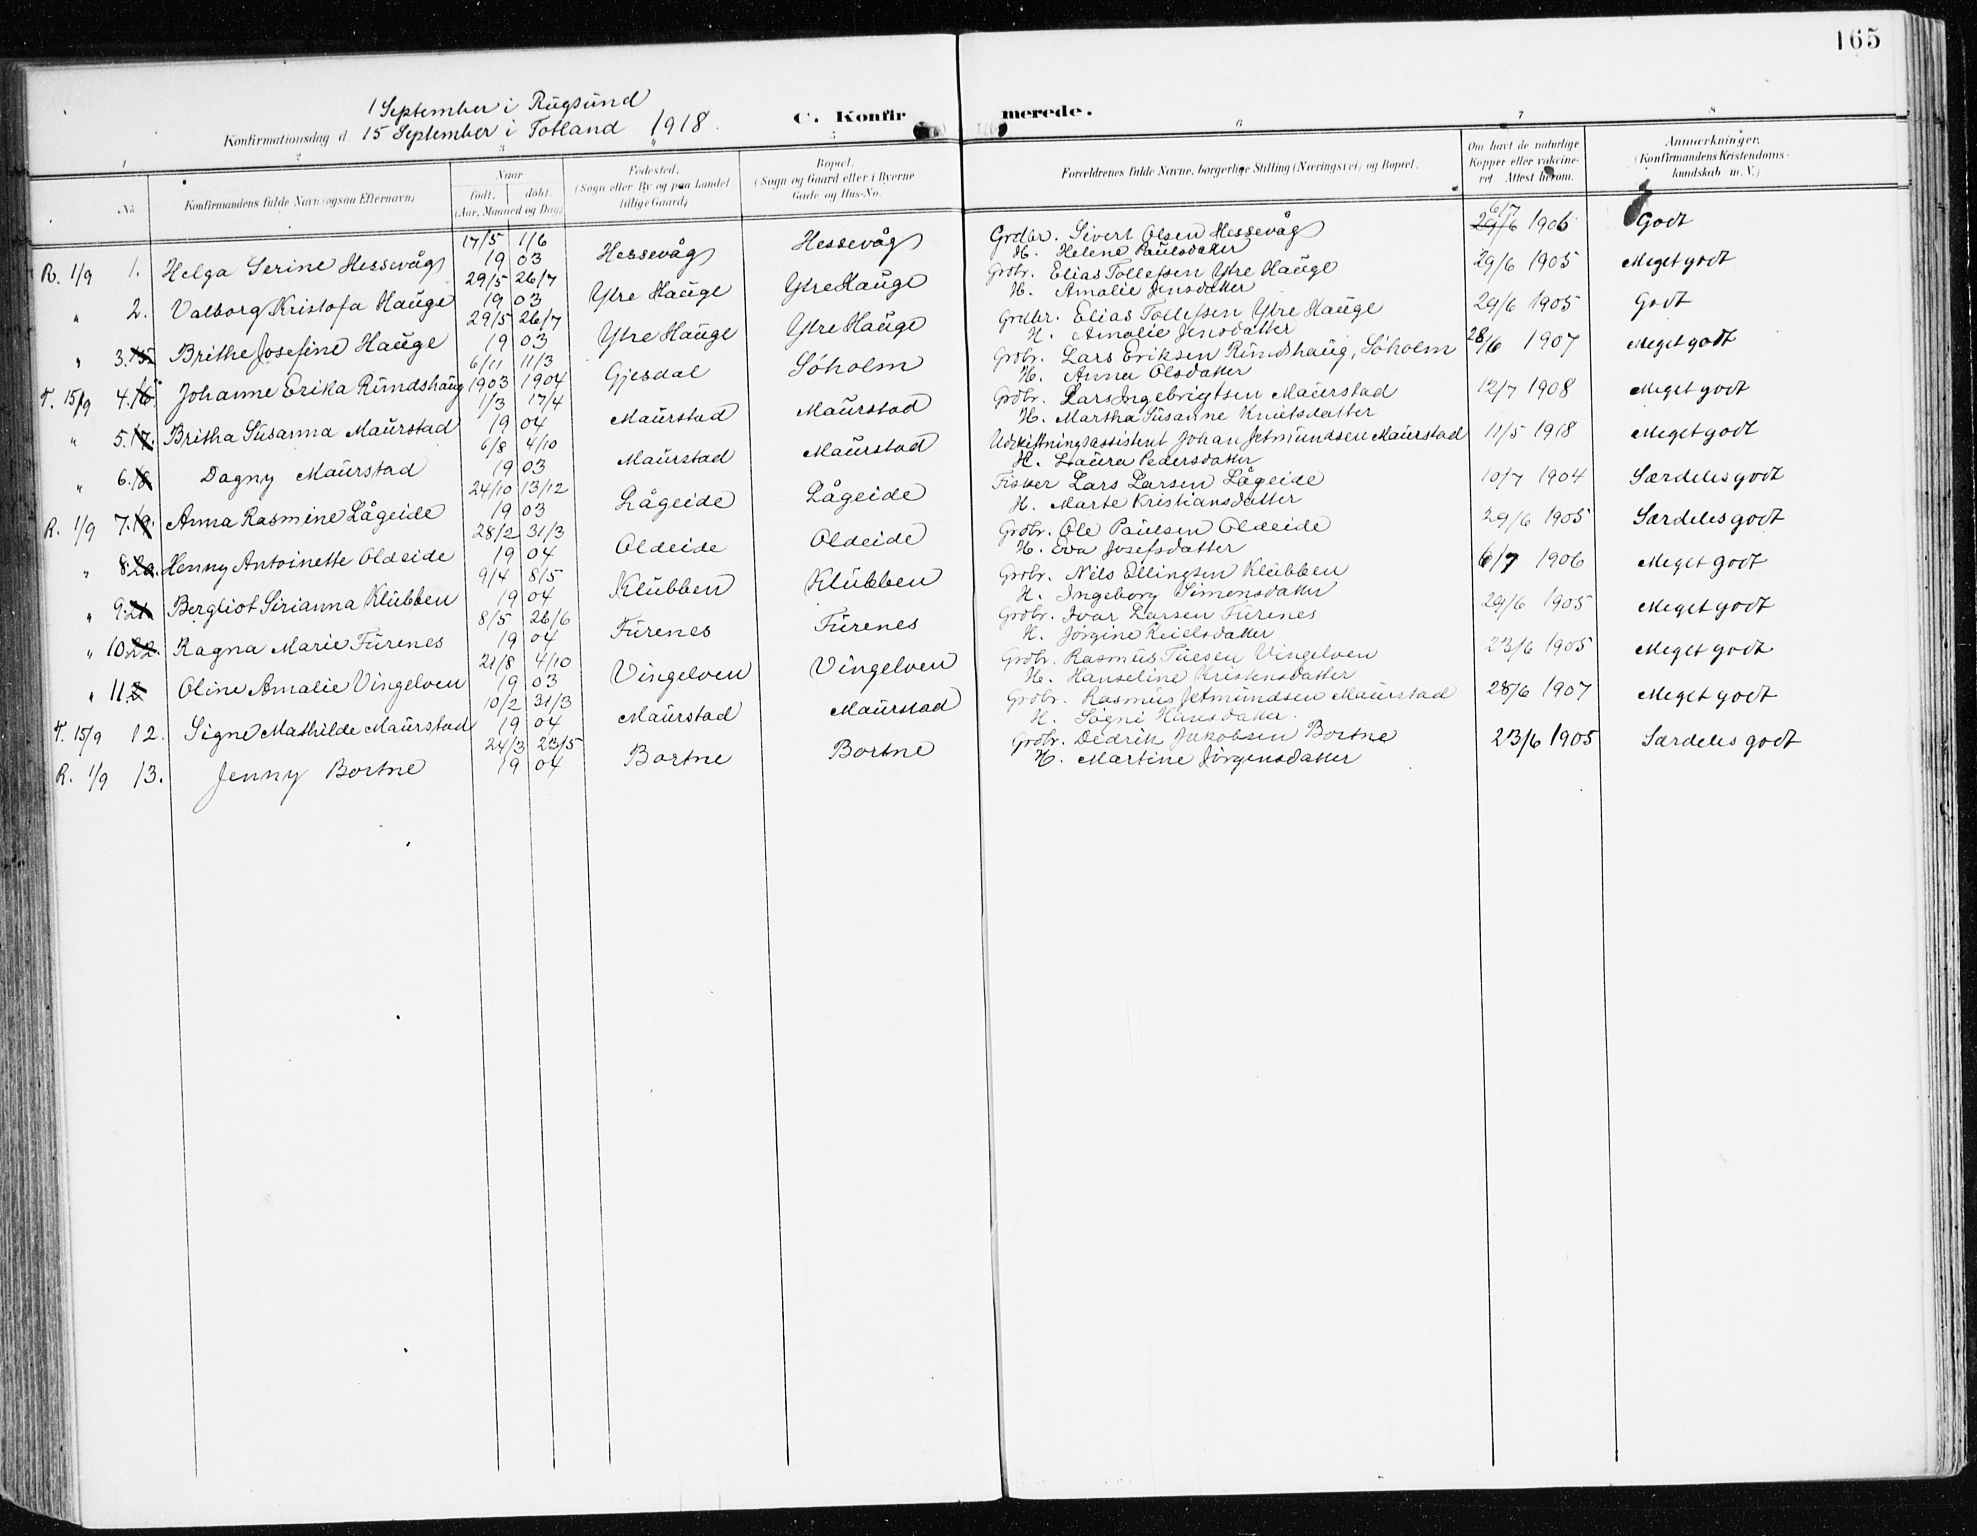 165
1 September i Rugsund
Konfirmationsdag d. 15 September i Totland 1918.
C. Konfirmerede.
1 2 3 5 6 7 8
No.
Konfirmandens fulde Navn (ogsaa Efternavn)
Naar
født, døbt.
(Aar, Maaned og Dag)
Fødested.
(Sogn eller By og paa Landet
tillige Gaard)
Bopæl.
(Sogn og Gaard eller i Byerne
Gade og Hus-No.
Forældrenes fulde Navne, borgerlige Stilling (Næringsvei) og Bopæl.
Om havt de naturlige
Kopper eller vakcine-
ret. Attest herom.
Anmærkninger.
(Konfirmandens Kristendoms-
kundskab m. V.)
R. 1/9 1. Helga Serine Hessevåg 17/5 1/6 19 03 Hessevåg Hessevåg Grdbr. Sivert Olsen Hessevåg 29/6 6/7 1906 Godt
H. Helene Paulsdatter
" 2. Valborg Kristofa Hauge 29/5 26/7 19 03 Ytre Hauge Ytre Hauge Grdbr. Elias Tollefsen Ytre Hauge 29/6 1905 Meget godt
H. Amalie Jensdatter
" 3. 15. Brithe Josefine Hauge 29/5 26/7 19 03 Ytre Hauge Ytre Hauge Grdbr. Elias Tollefsen Ytre Hauge 29/6 1905 Godt
H. Amalie Jensdatter
T. 15/9 4. 16. Johanne Erika Rundshaug 6/11 11/3 1903 1904 Gjesdal Söholm Grdbr. Lars Eriksen Rundshaug, Söholm 28/6 1907 Meget godt
H. Anna Olsdatter
" 5. 17. Britha Susanna Maurstad 1/3 17/4 19 04 Maurstad Maurstad Grdbr. Lars Ingebrigtsen Maurstad 12/7 1908 Meget godt
H. Martha Susanne Knutsdatter
" 6. 18. Dagny Maurstad 6/8 4/10 19 03 Maurstad Maurstad Udskiftningsassistent Johan Jetmundsen Maurstad 11/5 1918 Meget godt
H. Laura Pedersdatter
R. 1/9 7. 19. Anna Rasmine Lågeide 24/10 13/12 19 03 Lågeide Lågeide Fisker Lars Larsen Lågeide 10/7 1904 Særdeles godt
H. Marte Kristiansdatter
" 8. 20. Henny Antoinette Oldeide 28/2 31/3 19 04 Oldeide Oldeide Grdbr. Ole Paulsen Oldeide 29/6 1905 Særdeles godt
H. Eva Josefsdatter
" 9. 21. Bergliot Sirianna Klubben 9/4 8/5 19 04 Klubben Klubben Grdbr. Nils Ellingsen Klubben 6/7 1906 Meget godt
H. Ingeborg Simensdatter
" 10. 22. Ragna Marie Furenes 8/5 26/6 19 04 Furenes Furenes Grdbr. Ivar Larsen Furenes 29/6 1905 Meget godt
H. Jörgine Reielsdatter
" 11. Oline Amalie Vingelven 21/8 4/10 19 03 Vingelven Vingelven Grdbr. Rasmus Tuesen Vingelven 23/6 1905 Meget godt
H. Hanseline Kristensdatter
T. 15/9 12. Signe Mathilde Maurstad 10/2 31/3 19 04 Maurstad Maurstad Grdbr. Rasmus Jetmundsen Maurstad 28/6 1907 Meget godt
H. Søgni Hansdatter.
R. 1/9 13. Jenny Bortne 24/3 23/5 19 04 Bortne Bortne Grdbr. Dedrik Jakobsen Bortne 23/6 1905 Særdeles godt
H. Martine Jörgensdatter